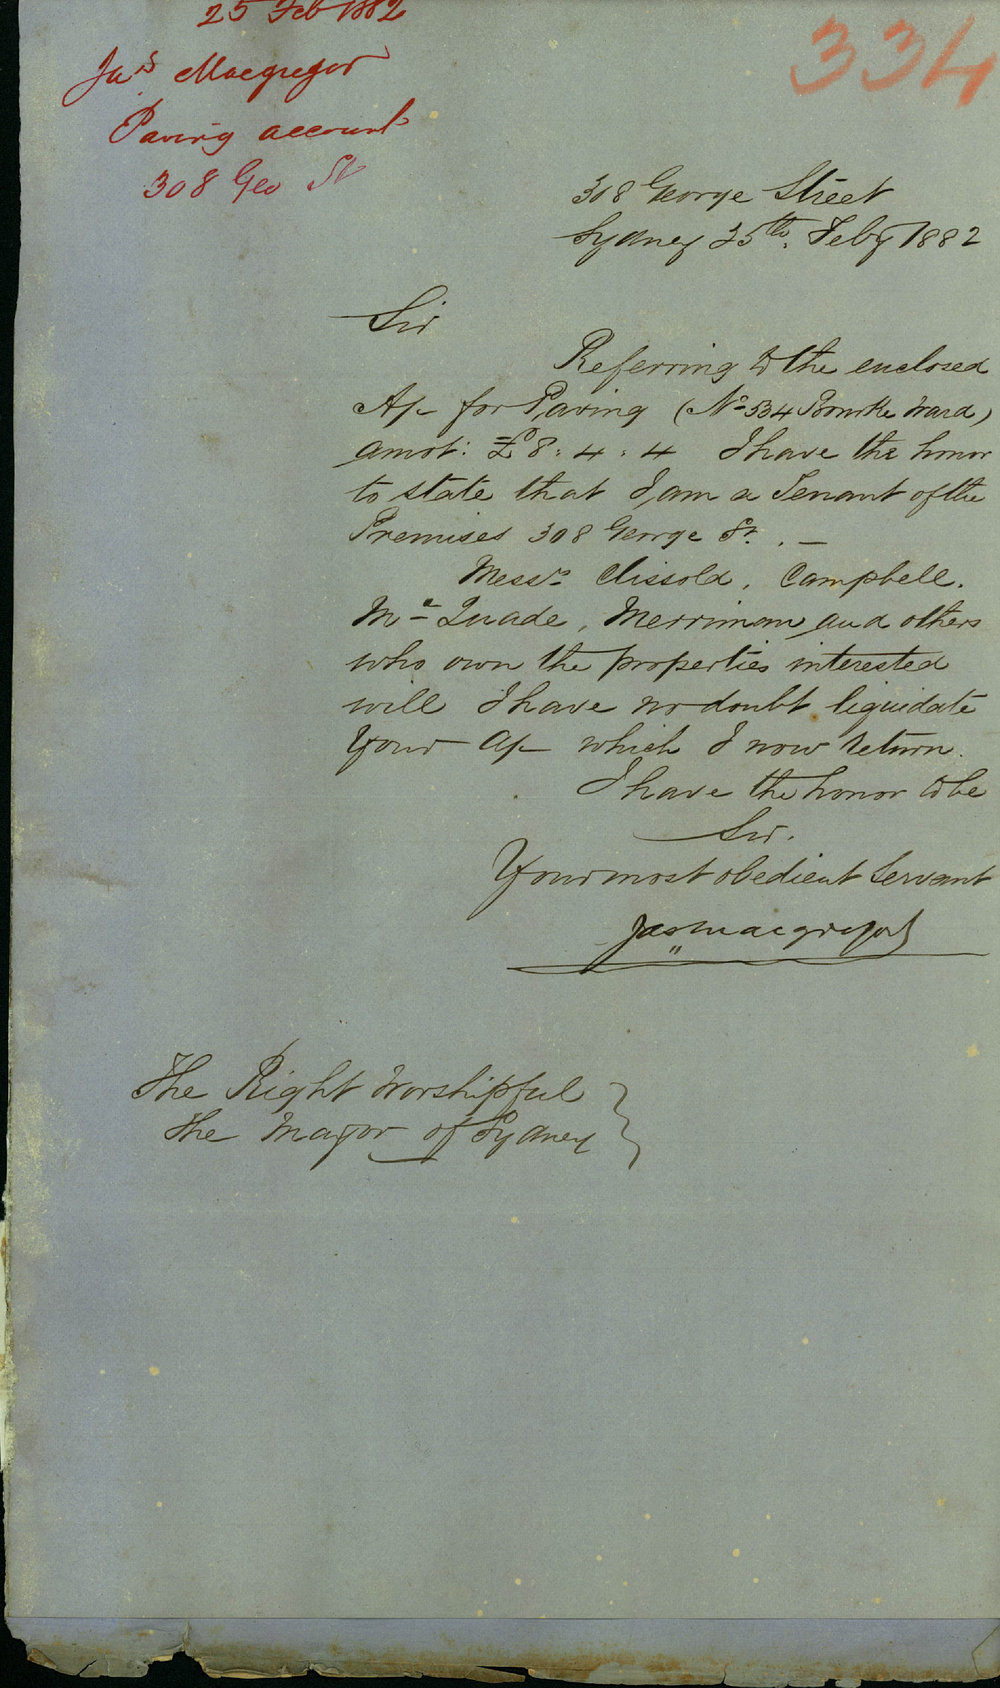 25 Feb 1882
Jas Macgregor
Paving account
308 Geo St
334
308 George Street
Sydney 25th. Feby 1882
Sir
Referring to the enclosed
A/c for Paving (No 534 Bourke Ward)
amot: £8:4:4 I have the honor
to state that I am a Tenant of the
Premises 308 George St. . —
Messrs Clissold, Campbell.
Mc Quade, Merriman and others
who own the properties interested
will I have no doubt liquidate
Your A/c which I now return.
I have the honor to be
Sir.
Your most obedient Servant
Jas Macgregor
The Right Worshipful
The Mayor of Sydney